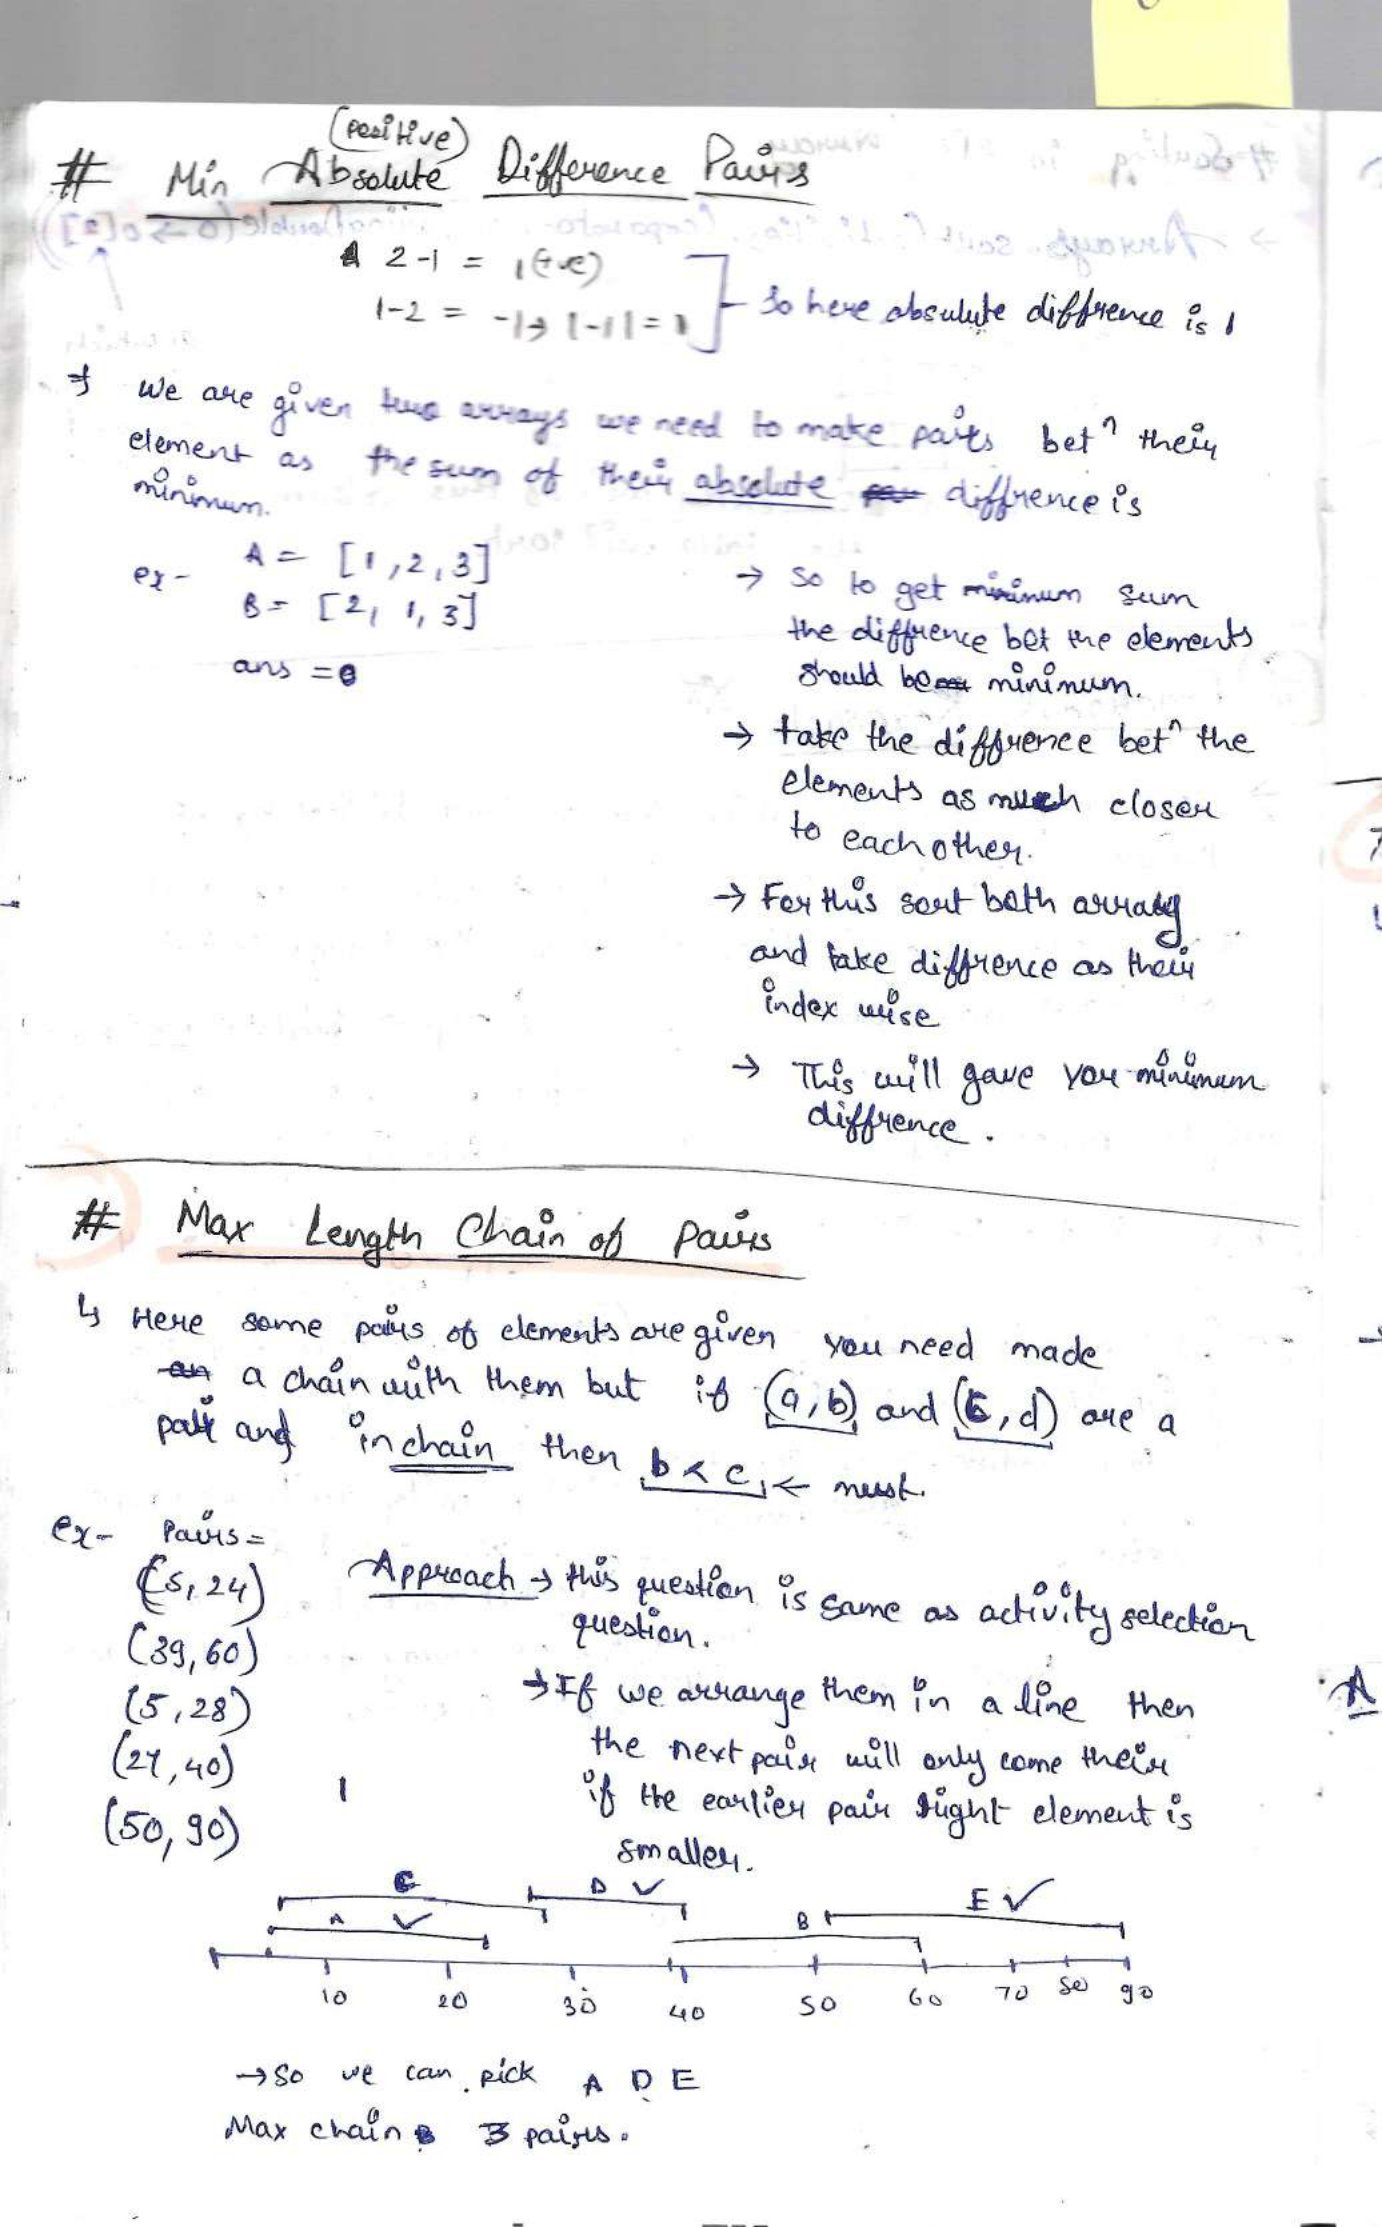 (positive)
# Min Absolute Difference Pairs
2-1 = 1(+ve)
1-2 = -1→ |-1| = 1
So here absulute diffrence is 1
→ We are given two arrays we need to make pairs betn their
element as the sum of their absolute diffrence is
minimum.
ex- A = [1,2,3]
B = [2, 1, 3]
ans = 0
→ So to get minimum sum
the diffrence bet the elements
should be minimum.
→ take the diffrence betn the
elements as much closer
to each other.
→ For this sort both array
and take diffrence as their
index wise
→ This will gave you minimum
diffrence.
# Max Length Chain of Pairs
↳ Here some pairs of elements are given you need made
a chain with them but if (a,b) and (c,d) are a
pair and in chain then b < c ← must.
ex- Pairs =
(5,24)
(39,60)
(5,28)
(27,40)
(50,90)
Approach → this question is same as activity selection
question.
→ If we arrange them in a line then
the next pair will only come their
if the earlier pair right element is
smaller.
C D ✓ E ✓
A ✓ B
10 20 30 40 50 60 70 80 90
→ So we can pick A D E
Max chain 3 pairs.